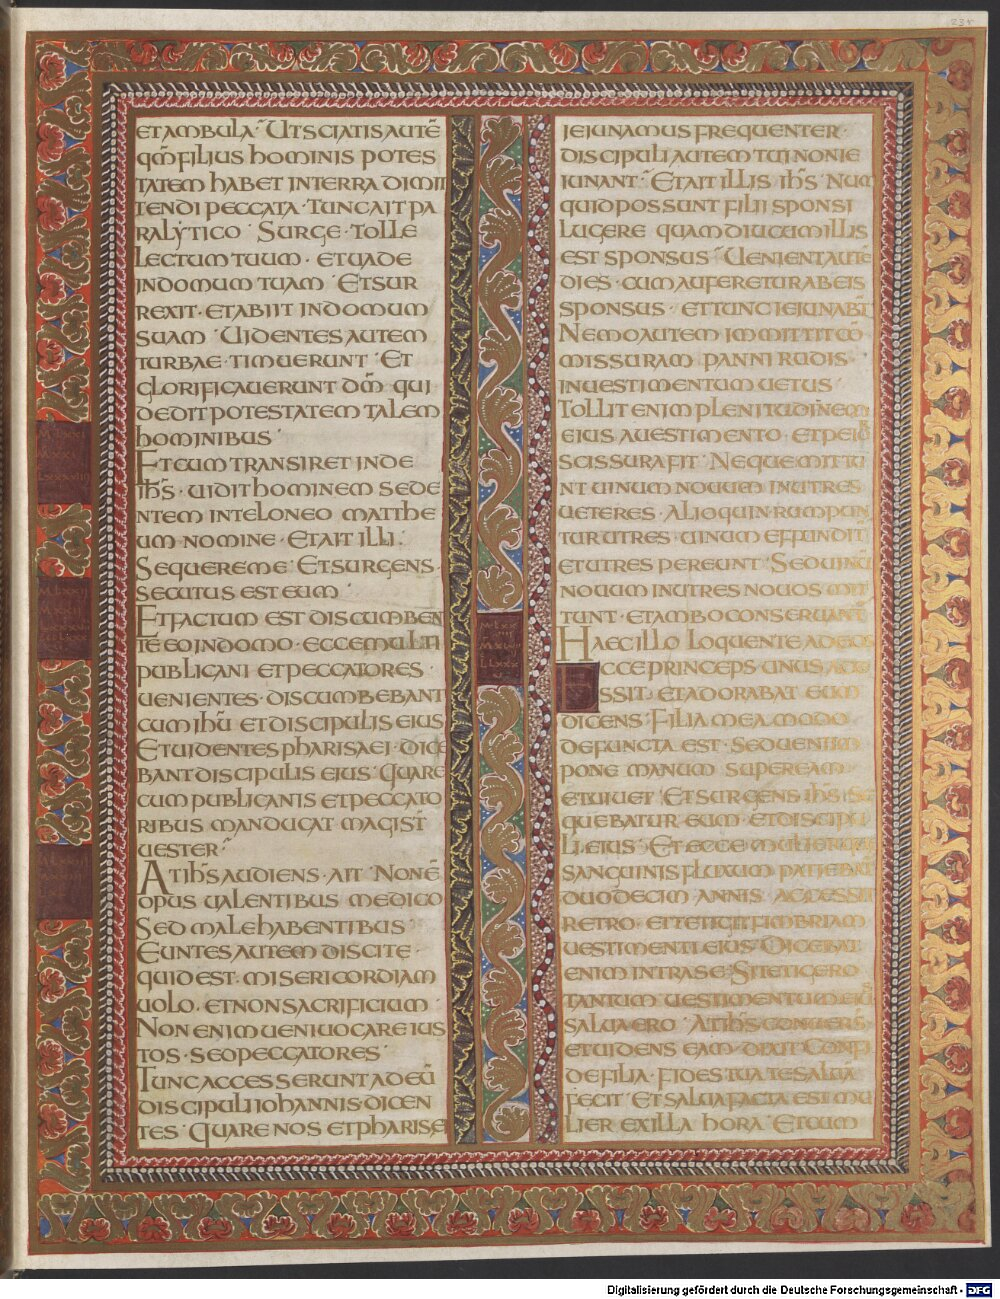 23r
ET AMBULA· UT SCIATIS AUTĒ
QM̄ FILIUS HOMINIS POTES
TATEM HABET IN TERRA DIMIT
TENDI PECCATA· TUNC AIT PA
RALYTICO· SURGE· TOLLE
LECTUM TUUM· ET UADE
IN DOMUM TUAM· ET SUR
REXIT· ET ABIIT IN DOMUM
SUAM· UIDENTES AUTEM
TURBAE· TIMUERUNT· ET
GLORIFICAUERUNT DM̄ QUI
DEDIT POTESTATEM TALEM
HOMINIBUS·
ET CUM TRANSIRET INDE
IHS̄· UIDIT HOMINEM SEDE
NTEM IN TELONEO MATTHE
UM NOMINE· ET AIT ILLI·
SEQUERE ME· ET SURGENS
SECUTUS EST EUM·
ET FACTUM EST DISCUMBEN
TE EO IN DOMO· ECCE MULTI
PUBLICANI ET PECCATORES·
UENIENTES· DISCUMBEBANT
CUM IHŪ ET DISCIPULIS EIUS
ET UIDENTES PHARISAEI· DICE
BANT DISCIPULIS EIUS· QUARE
CUM PUBLICANIS ET PECCATO
RIBUS MANDUCAT MAGIST
UESTER·
AT IHS̄ AUDIENS· AIT· NON Ē
OPUS UALENTIBUS MEDICO
SED MALE HABENTIBUS
EUNTES AUTEM DISCITE·
QUID EST· MISERICORDIAM
UOLO· ET NON SACRIFICIUM·
NON ENIM UENI UOCARE IUS
TOS· SED PECCATORES·
TUNC ACCESSERUNT AD EŪ
DISCIPULI IOHANNIS· DICEN
TES· QUARE NOS ET PHARISEI
IEIUNAMUS FREQUENTER·
DISCIPULI AUTEM TUI NON IE
IUNANT· ET AIT ILLIS IHS̄· NUM
QUID POSSUNT FILII SPONSI
LUGERE QUAMDIU CUM ILLIS
EST SPONSUS· UENIENT AUTĒ
DIES· CUM AUFERETUR AB EIS
SPONSUS· ET TUNC IEIUNABŪ
NEMO AUTEM IMMITTIT CŌ
MISSURAM PANNI RUDIS·
IN UESTIMENTUM UETUS·
TOLLIT ENIM PLENITUDINEM
EIUS A UESTIMENTO· ET PEIOR
SCISSURA FIT· NEQUE MITTU
NT UINUM NOUUM IN UTRES
UETERES· ALIOQUIN RUMPUN
TUR UTRES· UINUM EFFUNDIT
ET UTRES PEREUNT· SED UINŪ
NOUUM IN UTRES NOUOS MIT
TUNT· ET AMBO CONSERUANT
HAEC ILLO LOQUENTE AD EOS
ECCE PRINCEPS UNUS
SSIT· ET ADORABAT EUM
DICENS· FILIA MEA MODO
DEFUNCTA EST· SED UENI IM
PONE MANUM SUPER EAM
ET UIUET· ET SURGENS IHS̄ SE
QUEBATUR EUM· ET DISCIPU
LI EIUS· ET ECCE MULIER QUE
SANGUINIS FLUXUM PATIEBAT
DUODECIM ANNIS· ACCESSIT
RETRO· ET TETIGIT FIMBRIAM
UESTIMENTI EIUS· DICEBAT
ENIM INTRA SE· SI TETIGERO
TANTUM UESTIMENTUM EIUS
SALUA ERO· AT IHS̄ CONUERS
ET UIDENS EAM· DIXIT· CONFI
DE FILIA· FIDES TUA TE SALUĀ
FECIT· ET SALUA FACTA EST MU
LIER EX ILLA HORA· ET CUM
Digitalisierung gefördert durch die Deutsche Forschungsgemeinschaft - DFG